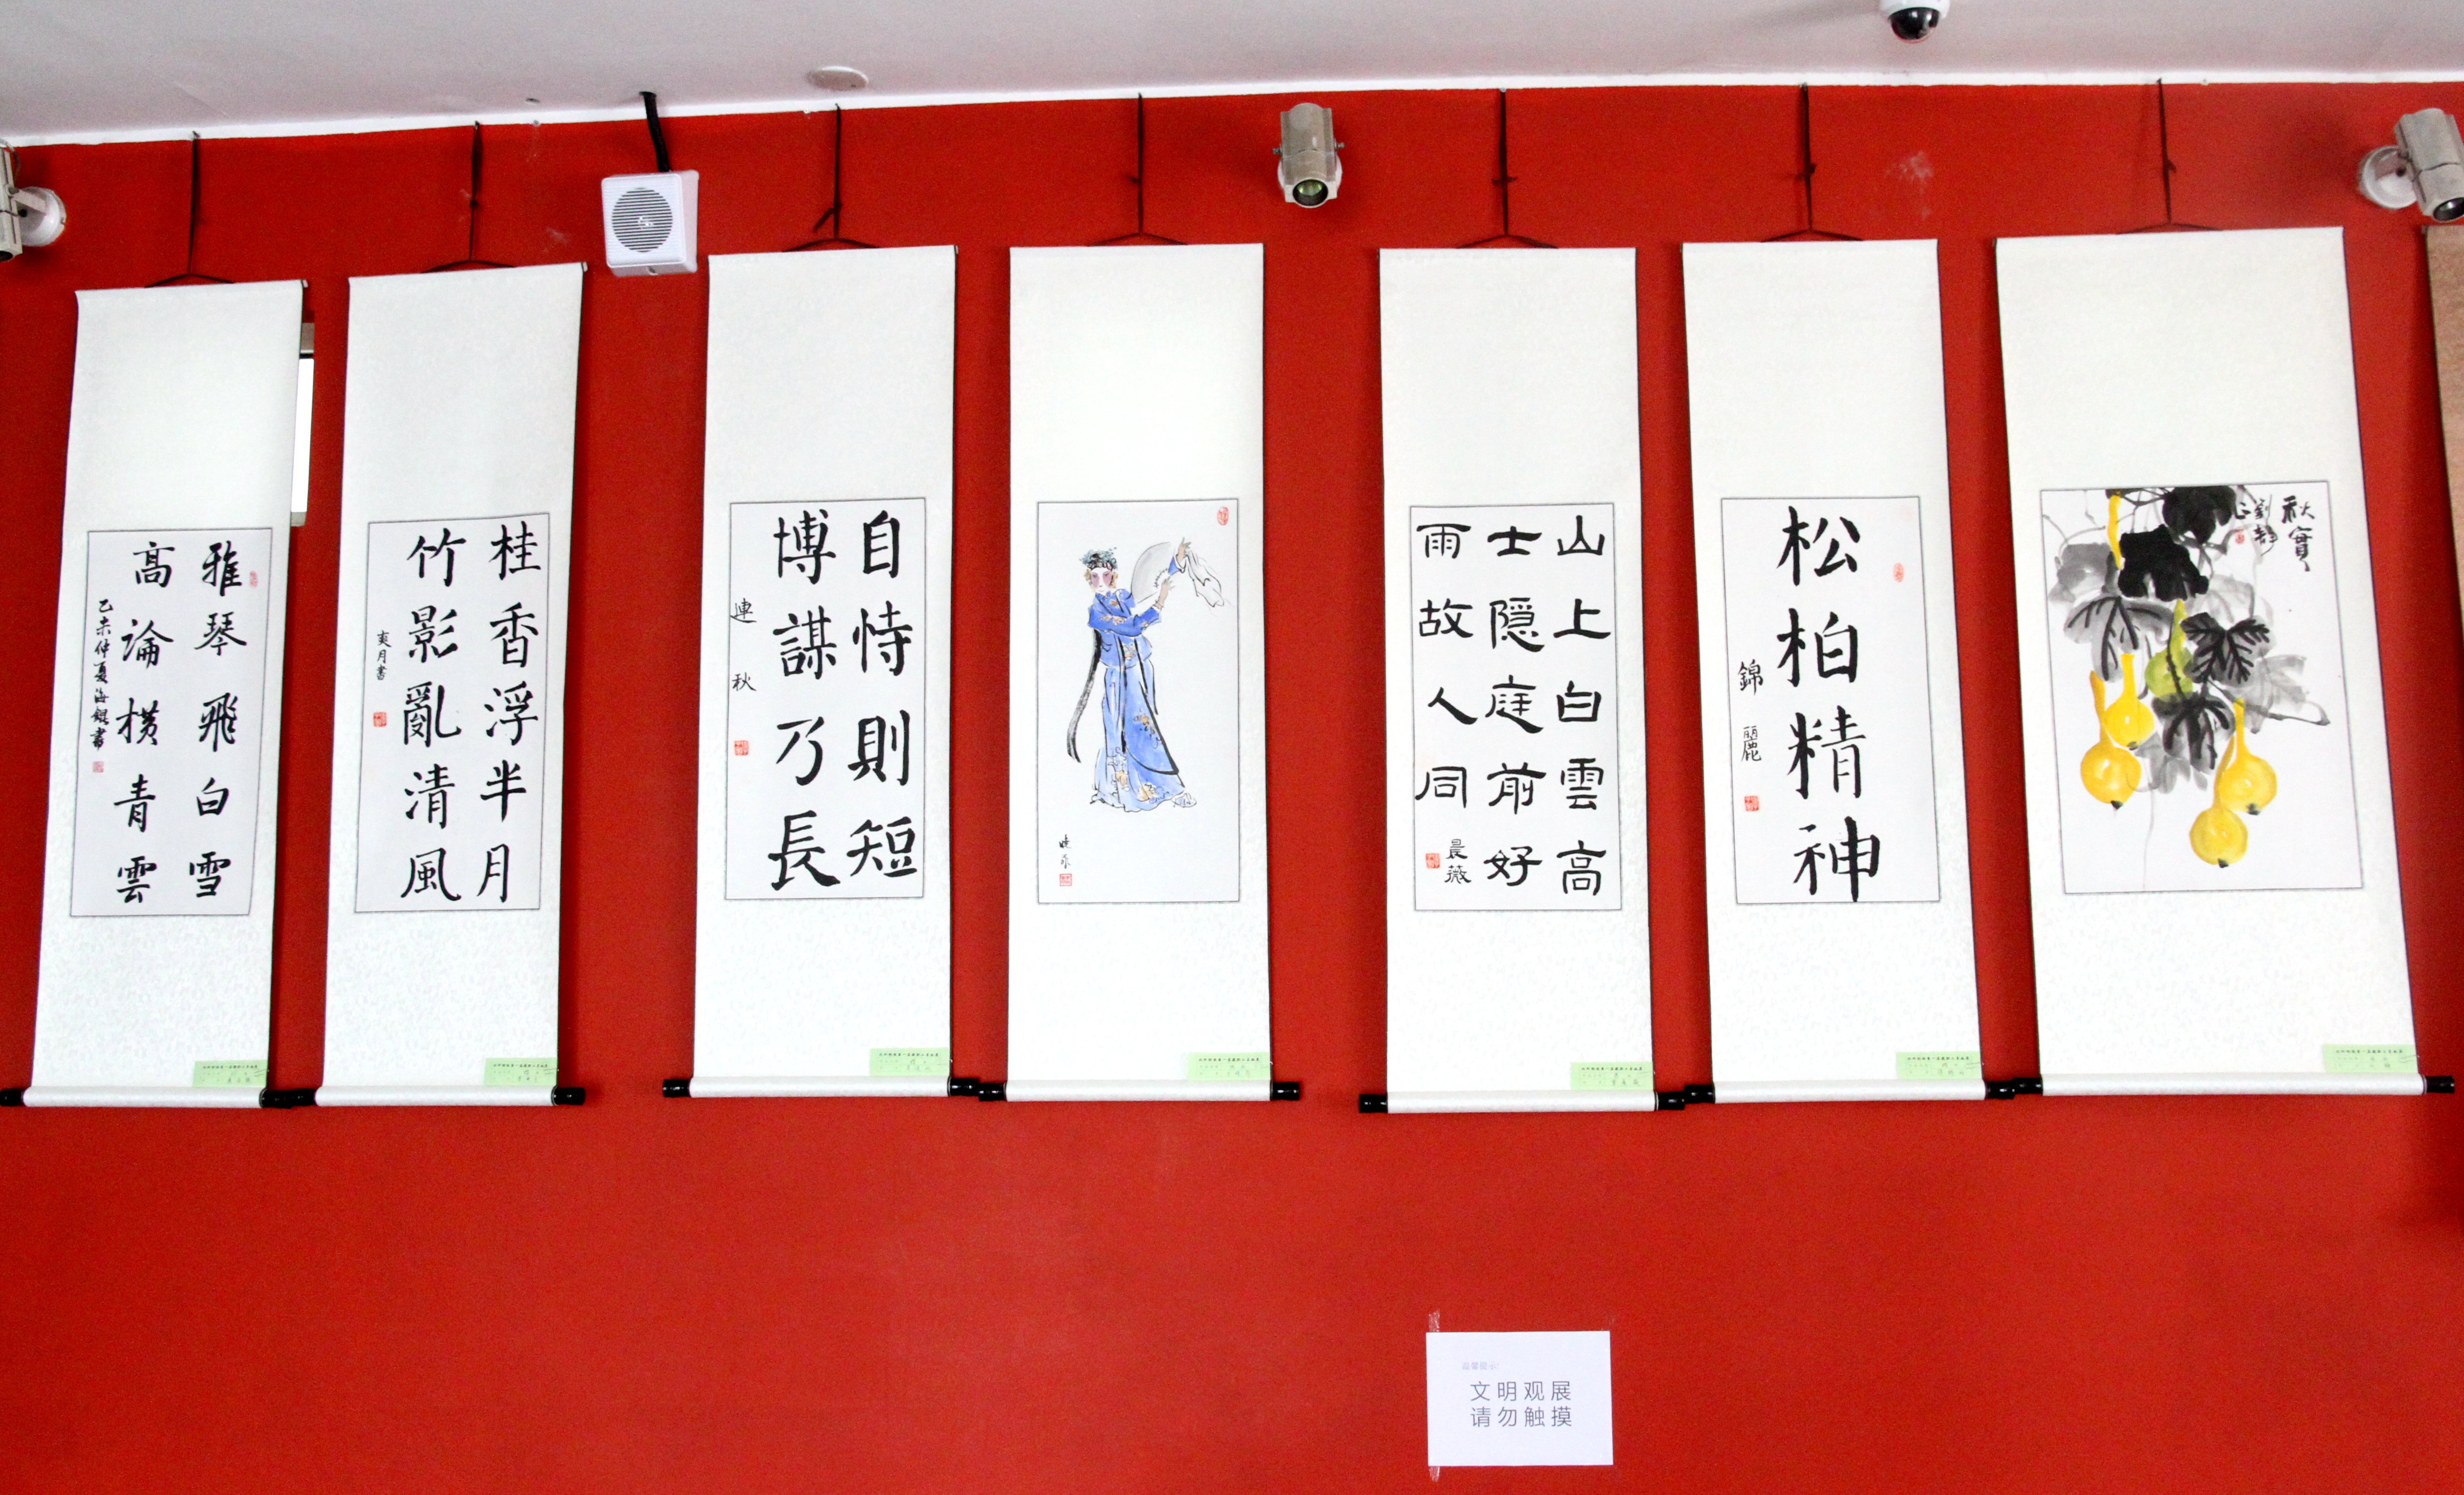 雅琴飛白雪
高論横青雲
乙未仲夏海錕書
桂香浮半月
竹影亂清風
爽月書
自恃則短
博謀乃長
連秋
山上白雲高
士隠庭前好
雨故人同
晨薇
松柏精神
錦麗
秋實
劉靜
温馨提示:
文明观展
请勿触摸